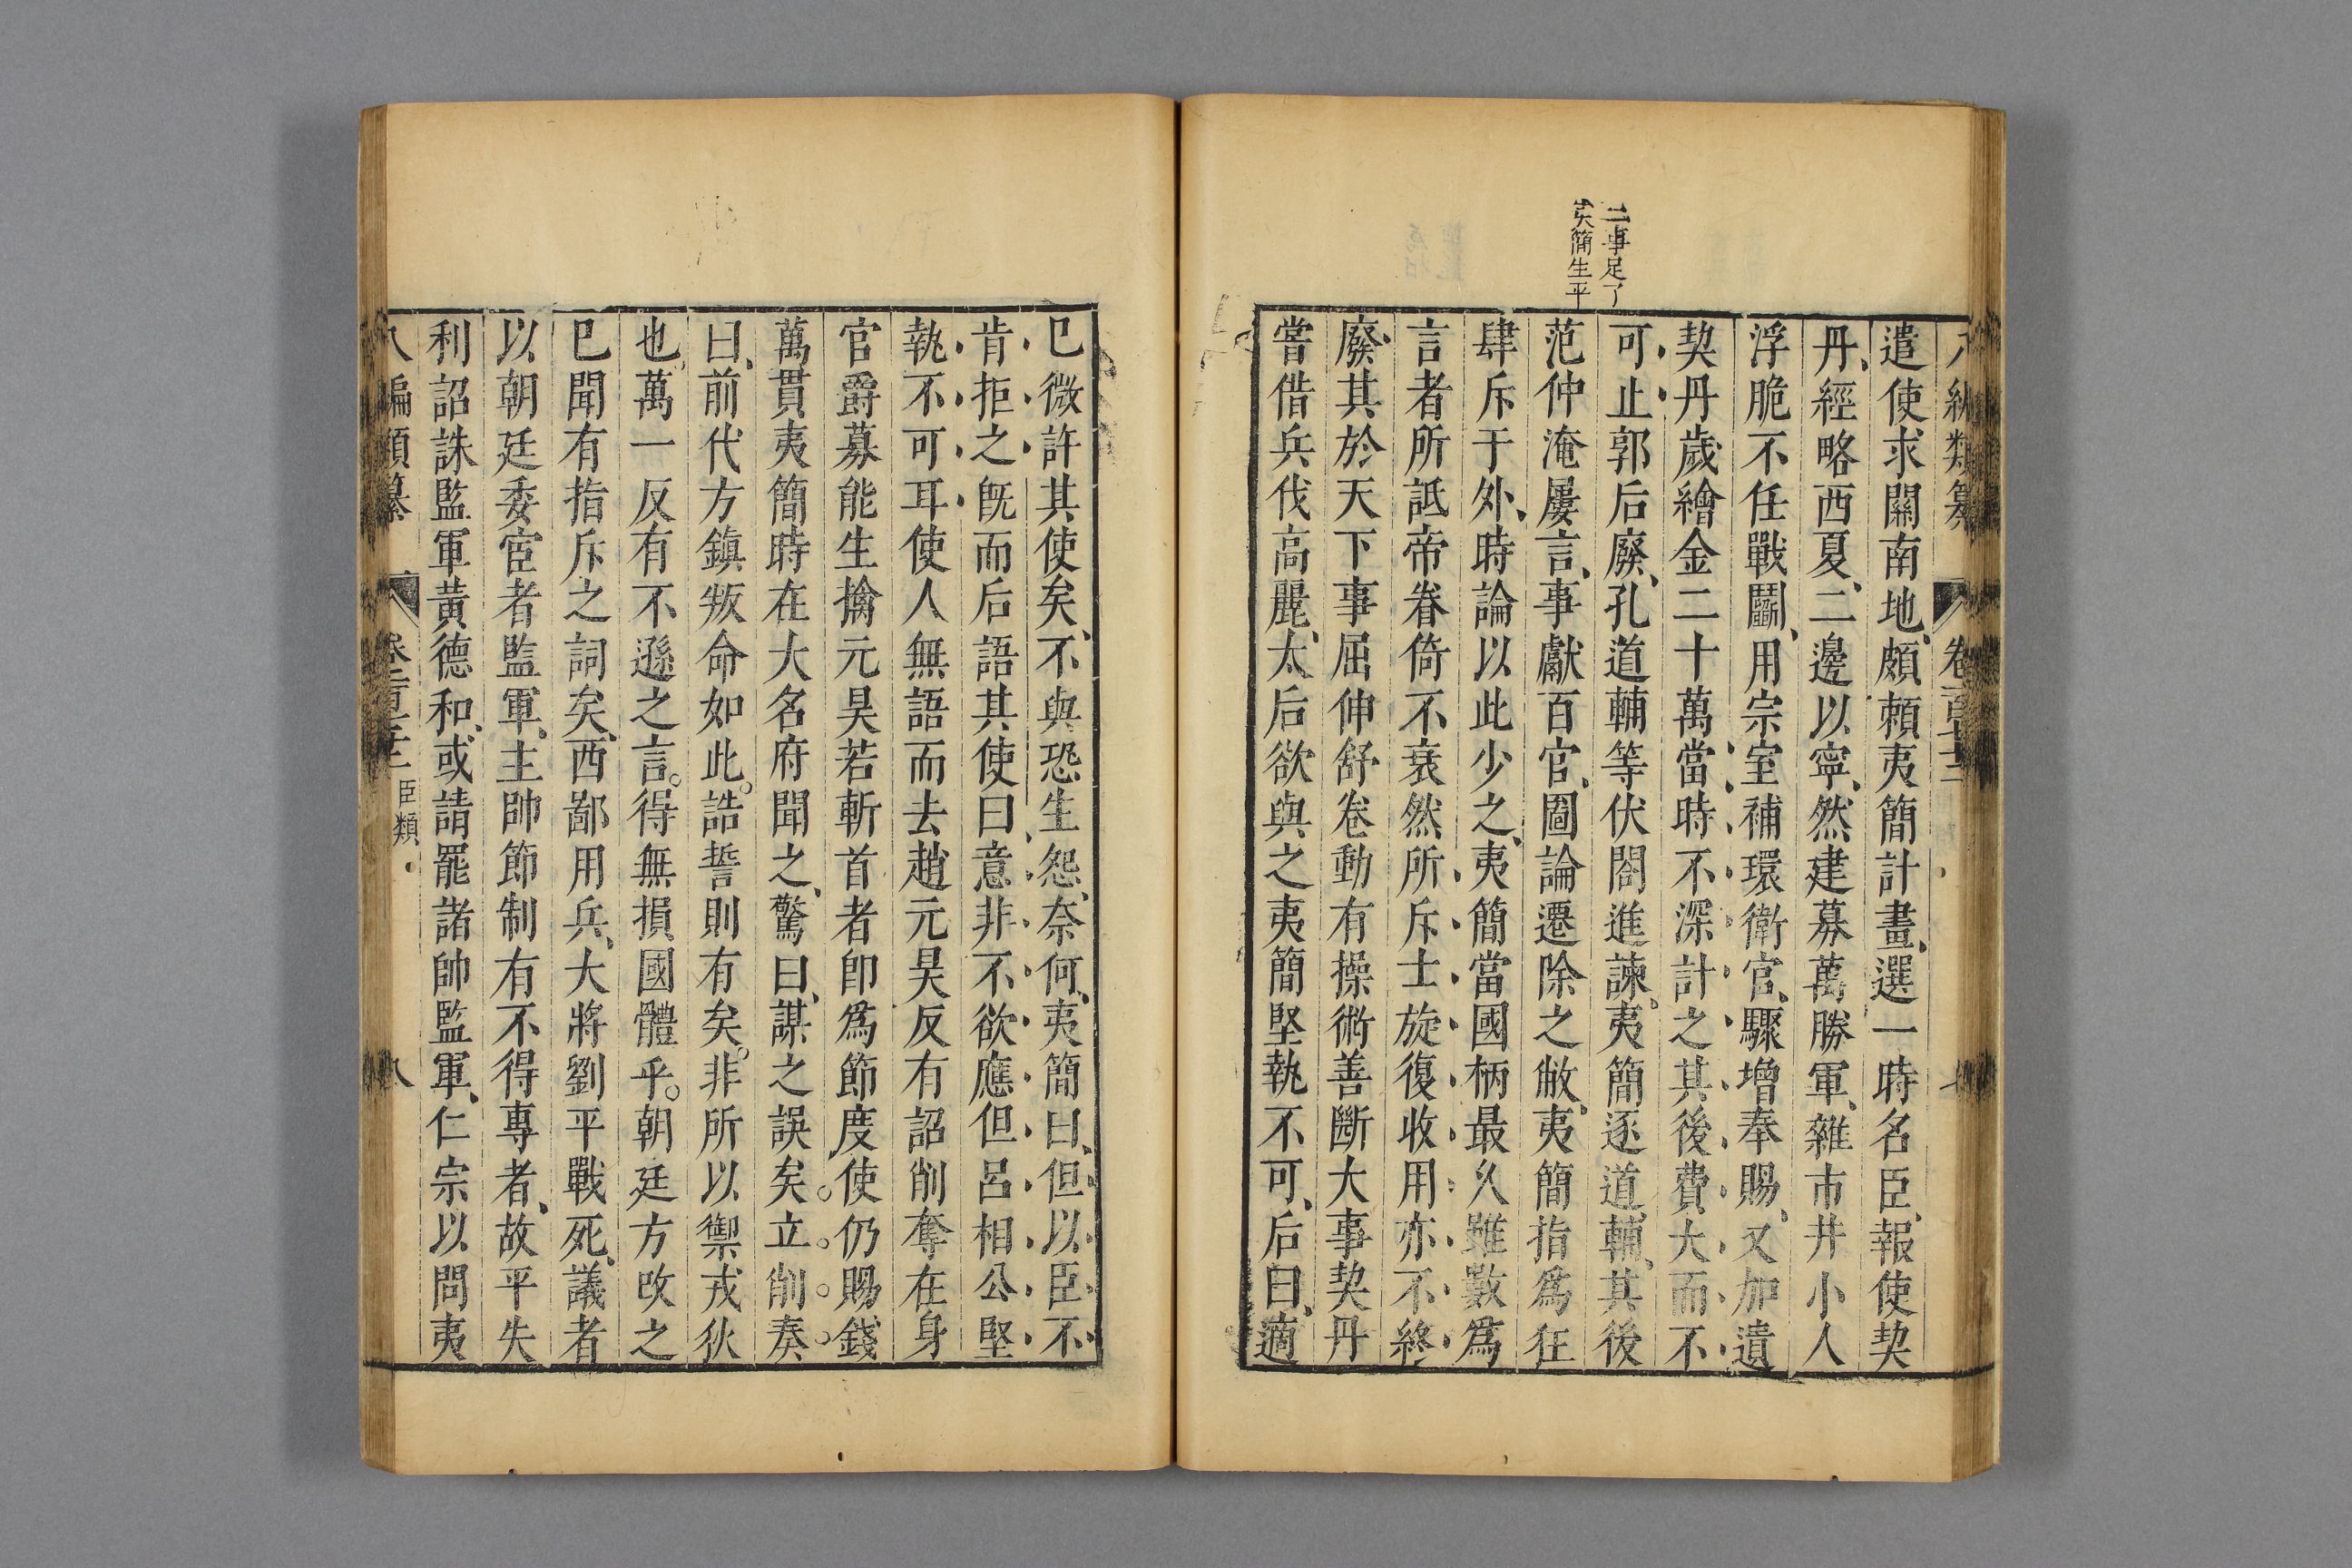 二事足了
夷簡生平
遣使求關南地、頗賴夷簡計畫、選一時名臣、報使契
丹、經略西夏、二邊以寧、然建募萬勝軍、雜市井小人
浮脆不任戰鬭、用宗室補環衛官、驟增奉賜、又加遺
契丹歲繒金二十萬、當時不深計之、其後費大而不
可止、郭后廢、孔道輔等伏閤進諫。夷簡逐道輔、其後
范仲淹屢言、事獻百官、圖論遷除之敝、夷簡指爲狂
肆斥于外、時論以此少之、夷簡當國柄最久雖數爲
言者所詆帝眷倚不衰然所斥士旋復收用亦不終
廢、其於天下事屈伸舒卷動有操術善斷大事契丹
嘗借兵伐高麗、太后欲與之夷簡堅執不可、后曰、適
巳微許其使矣、不與恐生怨、奈何、夷簡曰、但以臣不
肯拒之旣而后語其使曰、意非不欲應但呂相公堅
執不可耳使人無語而去趙元昊反有詔削奪在身
官爵募能生擒元昊若斬首者卽爲節度使仍賜錢
萬貫夷簡時在大名府聞之、驚曰、謀之誤矣。立削奏
曰、前代方鎮叛命如此。誥誓則有矣。非所以禦戎狄
也、萬一反有不遜之言。得無損國體乎。朝廷方改之
巳聞有指斥之詞矣、西鄙用兵、大將劉平戰死、議者
以朝廷委宦者監軍、主帥節制有不得專者、故平失
利詔誅監軍黃德和、或請罷諸帥監軍、仁宗以問夷
臣類
八